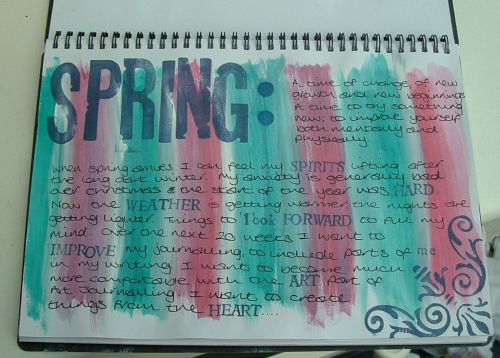 SPRING:
A time of change, of new
growth and new beginnings
A time to try something
new, to improve yourself
both mentally and
physically.
When spring arrives I can feel my SPIRITS lifting after
the long dark winter. My anxiety is generally bad
over christmas & the start of the year was HARD
Now the WEATHER is getting warmer, the nights are
getting lighter. Things to look FORWARD to fill my
mind. Over the next 20 weeks I want to
IMPROVE my journalling, to include parts of me
in my writing. I want to become much
more comfortable with the ART part of
Art Journalling. I want to create
things from the HEART....